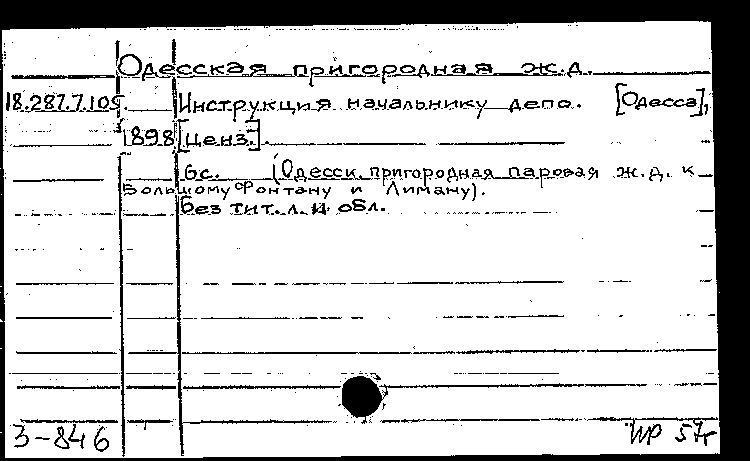 Одесская пригородная ж.д.
18.287.7.105 Инструкция начальнику депо. [Одесса],
1898 [ценз.].
6с. (Одесск. пригородная паровая ж.д. к
Большому Фонтану и Лиману).
Без тит. л. и обл.
3-846